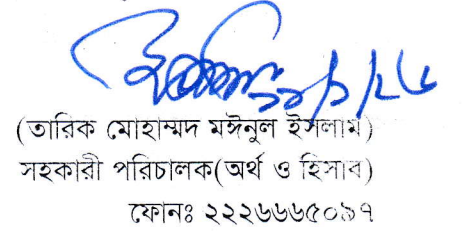 (তারিক মোহাম্মদ মঈনুল ইসলাম)
সহকারী পরিচালক(অর্থ ও হিসাব)
ফোনঃ ২২২৬৬৬৫০৯৭